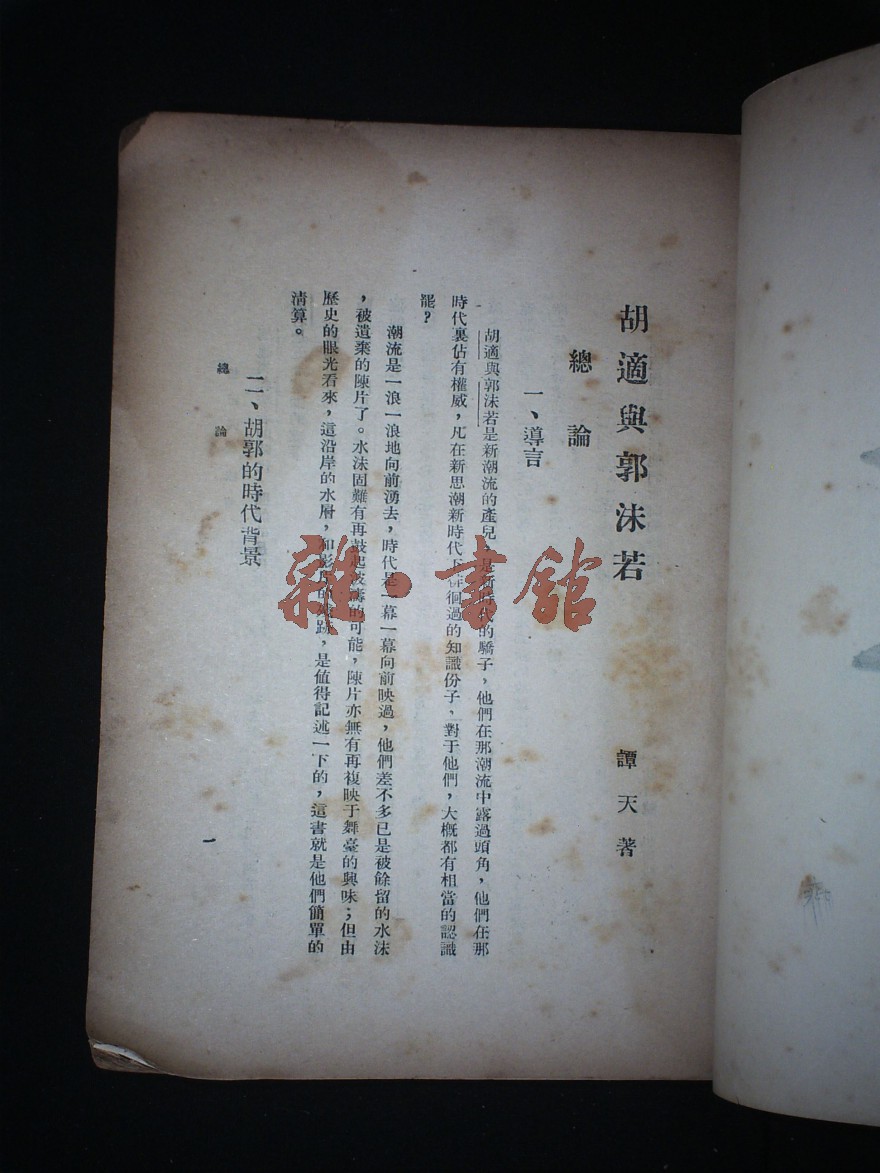 胡適與郭沫若
譚天著
總論
一、導言
胡適與郭沫若是新潮流的產兒，是新時代的驕子，他們在那潮流中露過頭角，他們在那
時代裏佔有權威，凡在新思潮新時代徊過的知識份子，對于他們，大概都有相當的認識
罷？
潮流是一浪一浪地向前湧去，時代是一幕一幕向前映過，他們差不多已是被餘留的水沫
，被遺棄的陳片了。水沫固難有再鼓起波濤的可能，陳片亦無有再複映于舞臺的興味；但由
歷史的眼光看來，這沿岸的水層，和影，是值得記述一下的，這書就是他們簡單的
清算。
二、胡郭的時代背景
總論
一
雜·書館